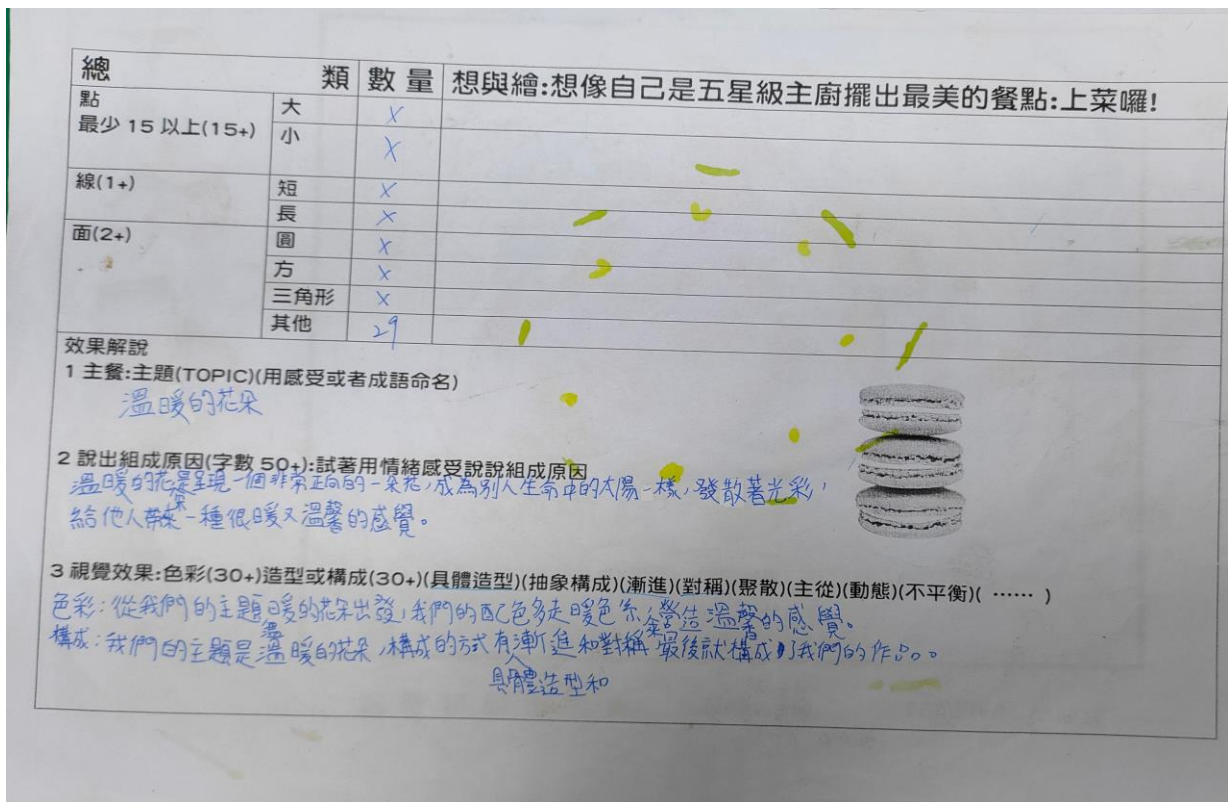 總類 數量 想與繪:想像自己是五星級主廚擺出最美的餐點:上菜囉!
點 大 X
最少 15 以上(15+) 小 X
線(1+) 短 X
長 X
面(2+) 圓 X
方 X
三角形 X
其他 29
效果解說
1 主餐:主題(TOPIC)(用感受或者成語命名)
溫暖的花朵
2 說出組成原因(字數 50+):試著用情緒感受說說組成原因
溫暖的花朵是呈現一個非常正向的一朵花,成為別人生命中的太陽一樣,發散著光彩,
給他人帶來一種很暖又溫馨的感覺。
3 視覺效果:色彩(30+)造型或構成(30+)(具體造型)(抽象構成)(漸進)(對稱)(聚散)(主從)(動態)(不平衡)( …… )
色彩:從我們的主題暖的花朵出發,我們的配色多走暖色系,營造溫馨的感覺。
構成:我們的主題是溫暖的花朵,構成的方式有具體造型和漸進和對稱 最後就構成了我們的作品。